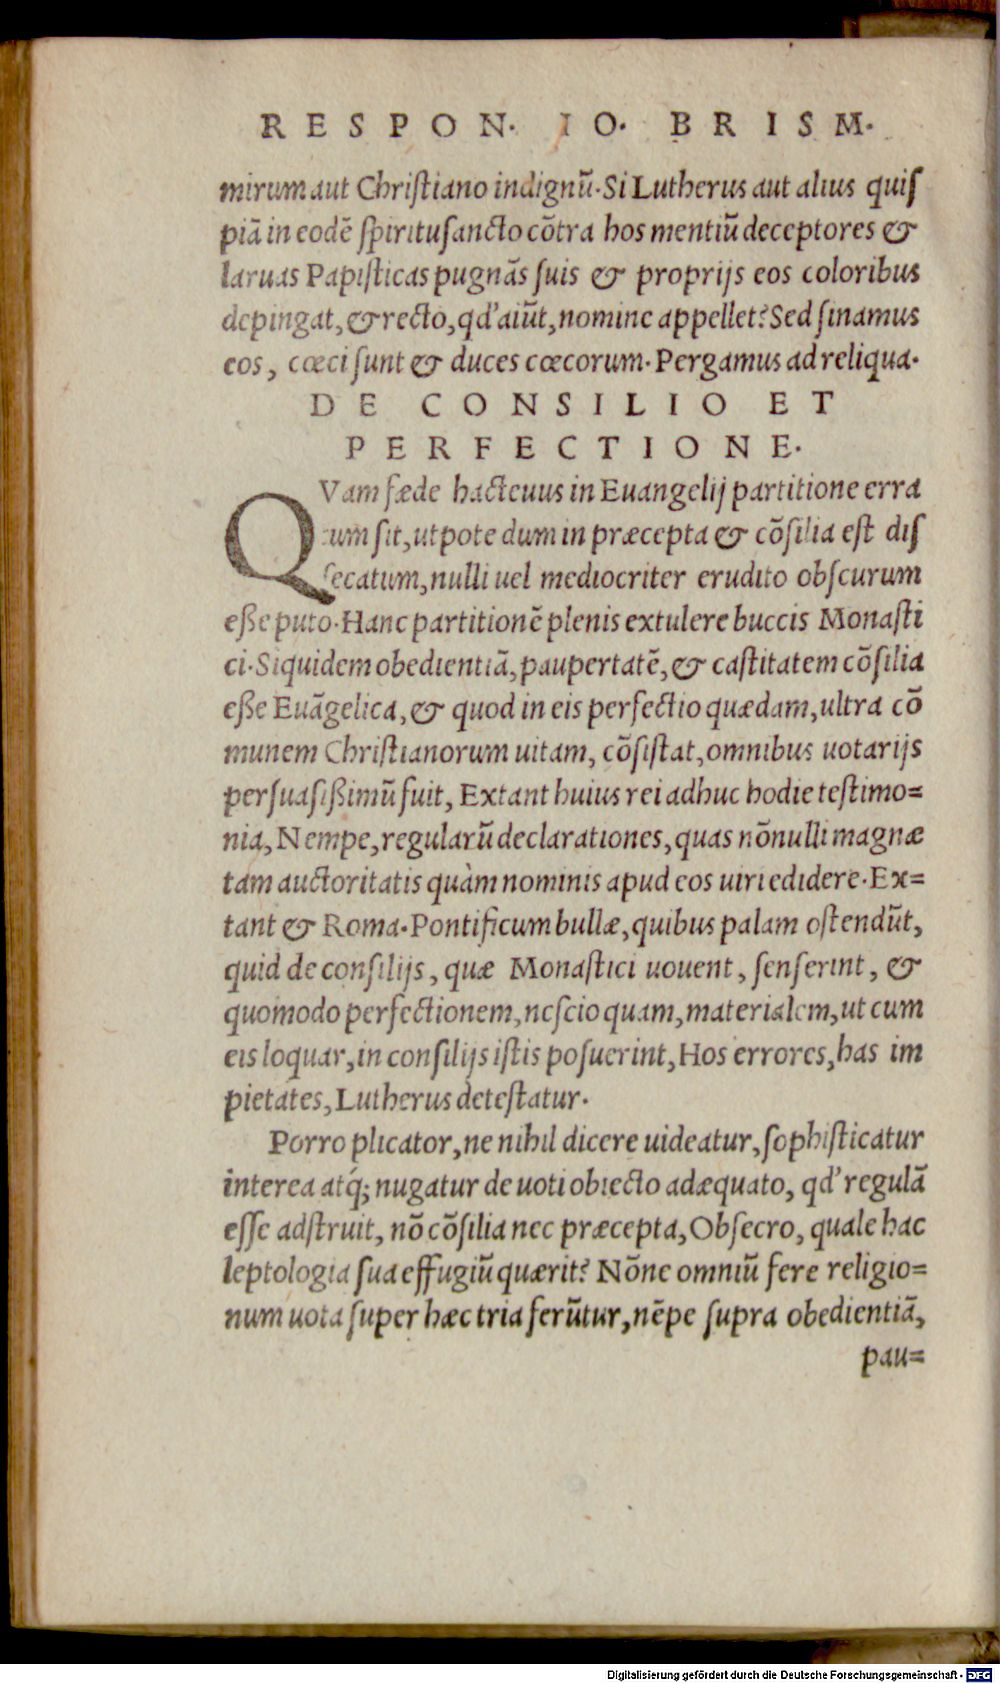 RESPON. IO. BRISM.
mirum aut Christiano indignũ. Si Lutherus aut alius quis
piã in eodẽ spiritu sancto cõtra hos mentiũ deceptores &
laruas Papisticas pugnãs suis & proprijs eos coloribus
depingat, & recto, qd' aiũt, nomine appellet? Sed sinamus
eos, cœci sunt & duces cœcorum. Pergamus ad reliqua.
DE CONSILIO ET
PERFECTIONE.
QVam fæde hacteuus in Euangelij partitione erra
tum sit, utpote dum in præcepta & cõsilia est dis
secatum, nulli uel mediocriter erudito obscurum
eße puto. Hanc partitionẽ plenis extulere buccis Monasti
ci. Siquidem obedientiã, paupertatẽ, & castitatem cõsilia
eße Euãgelica, & quod in eis perfectio quædam, ultra cõ
munem Christianorum uitam, cõsistat, omnibus uotarijs
persuasißimũ fuit, Extant huius rei adhuc hodie testimo=
nia, Nempe, regularũ declarationes, quas nõnulli magnæ
tam auctoritatis quàm nominis apud eos uiri edidere. Ex=
tant & Roma. Pontificum bullæ, quibus palam ostendũt,
quid de consilijs, quæ Monastici uouent, senserint, &
quomodo perfectionem, nescio quam, materialem, ut cum
eis loquar, in consilijs istis posuerint, Hos errores, has im
pietates, Lutherus detestatur.
Porro plicator, ne nihil dicere uideatur, sophisticatur
interea atq́; nugatur de uoti obiecto adæquato, qd' regulã
esse adstruit, nõ cõsilia nec præcepta, Obsecro, quale hac
leptologia sua effugiũ quærit? Nõne omniũ fere religio=
num uota super hæc tria ferũtur, nẽpe supra obedientiã,
pau=
Digitalisierung gefördert durch die Deutsche Forschungsgemeinschaft - DFG